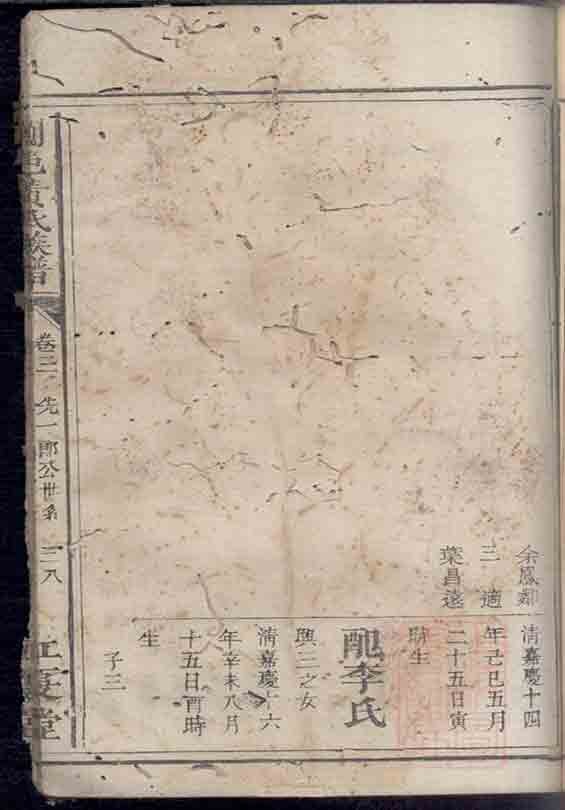 余鳳鄰
三適
葉昌遠
清嘉慶十四
年己巳五月
二十五日寅
時生
配李氏
興二之女
清嘉慶十六
年辛未八月
十五日酉時
生
子三
邑黃氏族譜
卷三
先一郎公世系
三八
江夏堂